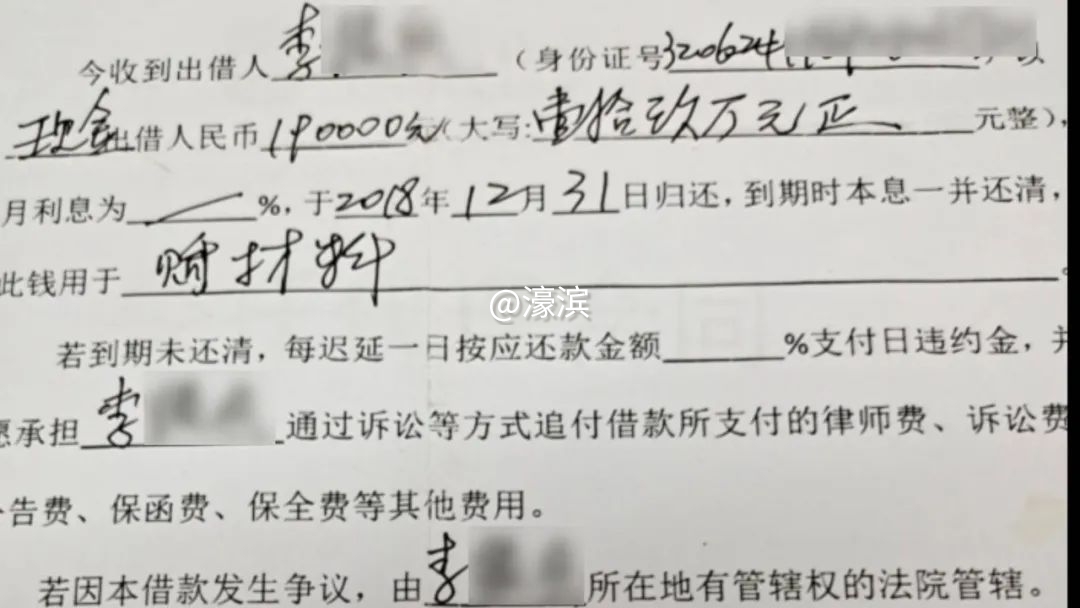 今收到出借人李（身份证号320624
现金出借人民币190000元（大写:壹拾玖万元正元整），
月利息为/%，于2018年12月31日归还，到期时本息一并还清，
此钱用于购材料。
@濠滨
若到期未还清，每迟延一日按应还款金额%支付日违约金，并
愿承担李通过诉讼等方式追付借款所支付的律师费、诉讼费
告费、保函费、保全费等其他费用。
若因本借款发生争议，由李所在地有管辖权的法院管辖。